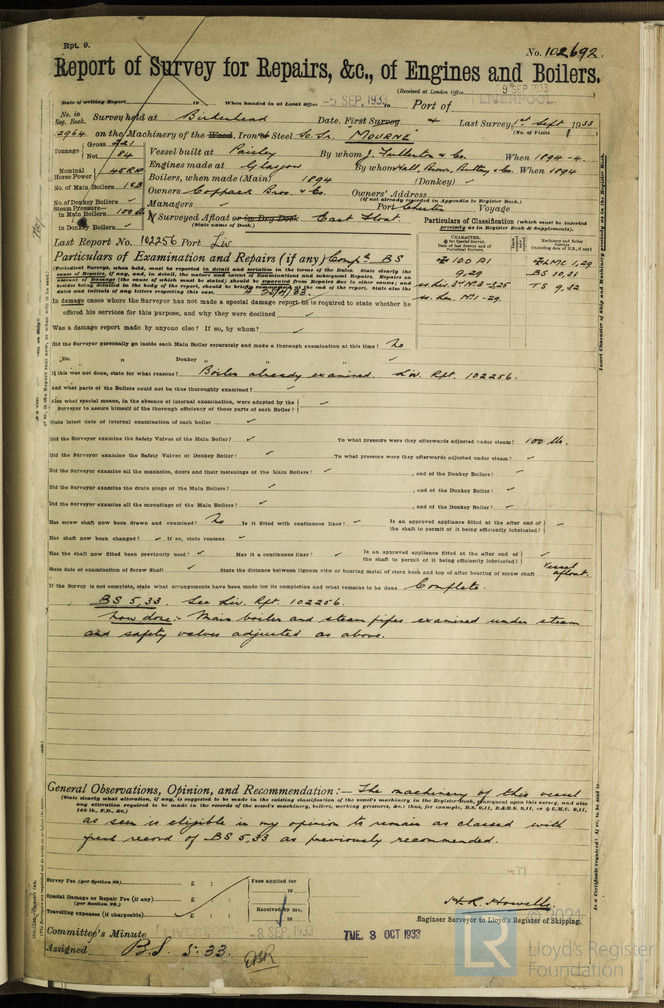 Rpt. 9.
No. 102692
Report of Survey for Repairs, &c., of Engines and Boilers.
(Received at London Office 9 SEP 1933
Date of writing Report to When handed in at Local Office -5 SEP. 1933 Port of LIVERPOOL
No. in Reg. Book. Survey held at Birkenhead Date, First Survey Last Survey, 1st Sept 1933
12964 on the Machinery of the Wood, Iron or Steel Sc. Sr. "MOURNE" (No. of Visits
Tonnage Gross 221 Net 84
Vessel built at Paisley By whom J. Fullerton & Co. When 1894-4.
Engines made at Glasgow By whom Hall, Brown, Buttery & Co. When 1894
Nominal Horse Power 45 RH
Boilers, when made (Main) 1894 (Donkey) ✓
No. of Main Boilers 1SB
Owners Coppack Bros. & Co. Owners' Address
(if not already recorded in Appendix to Register Book.)
No. of Donkey Boilers ✓
Managers ✓ Port Chester Voyage
Steam Pressure in Main Boilers 100 lb
If Surveyed Afloat or in Dry Dock East Float.
(State name of Dock.)
in Donkey Boilers ✓
Particulars of Classification (which must be inserted precisely as in Register Book & Supplements).
Last Report No. 102256 Port Liv
Particulars of Examination and Repairs (if any) Compn. BS
✠ 100 A1
9,29
✠LMC 1,29
BS 10,31
TS 9,32
(Periodical Surveys, when held, must be reported in detail and seriatim in the terms of the Rules. State clearly the
In damage cases where the Surveyor has not made a special damage report is he required to state whether he
offered his services for this purpose, and why they were declined ✓
Was a damage report made by anyone else? If so, by whom? ✓
Did the Surveyor personally go inside each Main Boiler separately and make a thorough examination at this time? No
Do. " Donkey " " " ✓
If this was not done, state for what reasons? Boiler already examined. Liv. Rpt. 102256.
And what parts of the Boilers could not be thoroughly examined? ✓
Also what special means, in the absence of internal examination, were adopted by the
Surveyor to assure himself of the thorough efficiency of those parts of each Boiler? ✓
State latest date of internal examination of each boiler ✓
Did the Surveyor examine the Safety Valves of the Main Boiler? ✓ To what pressure were they afterwards adjusted under steam? 100 lb.
Did the Surveyor examine the Safety Valves of Donkey Boiler? ✓ To what pressure were they afterwards adjusted under steam? ✓
Did the Surveyor examine all the manholes, doors and their fastenings of the Main Boilers? ✓ , and of the Donkey Boilers? ✓
Did the Surveyor examine the drain plugs of the Main Boilers? ✓ , and of the Donkey Boiler? ✓
Did the Surveyor examine all the mountings of the Main Boilers? ✓ , and of the Donkey Boiler? ✓
Has screw shaft now been drawn and examined? No Is it fitted with continuous liner? ✓ Is an approved appliance fitted at the after end of the shaft to permit of it being efficiently lubricated? ✓
Has shaft now been changed? ✓ If so, state reasons ✓
Has the shaft now fitted been previously used? ✓ Has it a continuous liner? ✓ Is an approved appliance fitted at the after end of the shaft to permit of it being efficiently lubricated? ✓
State date of examination of Screw Shaft ✓ State the distance between lignum vitæ or bearing metal of stern bush and top of after bearing of screw shaft Vessel afloat.
If the Survey is not complete, state what arrangements have been made for its completion and what remains to be done Complete.
BS 5,33 See Liv. Rpt. 102256.
Now done:- Main boiler and steam pipes examined under steam
and safety valves adjusted as above.
General Observations, Opinion, and Recommendation:— The machinery of this vessel
(State clearly what alteration, if any, is suggested to be made in the existing classification of the vessel's machinery in the Register Book, consequent upon this survey, and also
any alteration required to be made in the records of the vessel's machinery, boilers, working pressures, &c.; thus, for example, B.S. 9,11, B.&B.S. 9,11, or ✠ L.M.C. 9,11,
140 lb., F.D., &c.)
as seen is eligible in my opinion to remain as classed with
fresh record of BS 5,33 as previously recommended.
Survey Fee (per Section 29) £ :
Special Damage or Repair Fee (if any) (per Section 29.) £ :
Travelling expenses (if chargeable) £ :
Fees applied for 19
Received by me, 19
H.R. Howells
Engineer Surveyor to Lloyd's Register of Shipping.
Committee's Minute LIVERPOOL -8 SEP. 1933
TUE. 3 OCT 1933
Assigned B.S. 5.33.
© 2021
LR
Lloyd's Register
Foundation